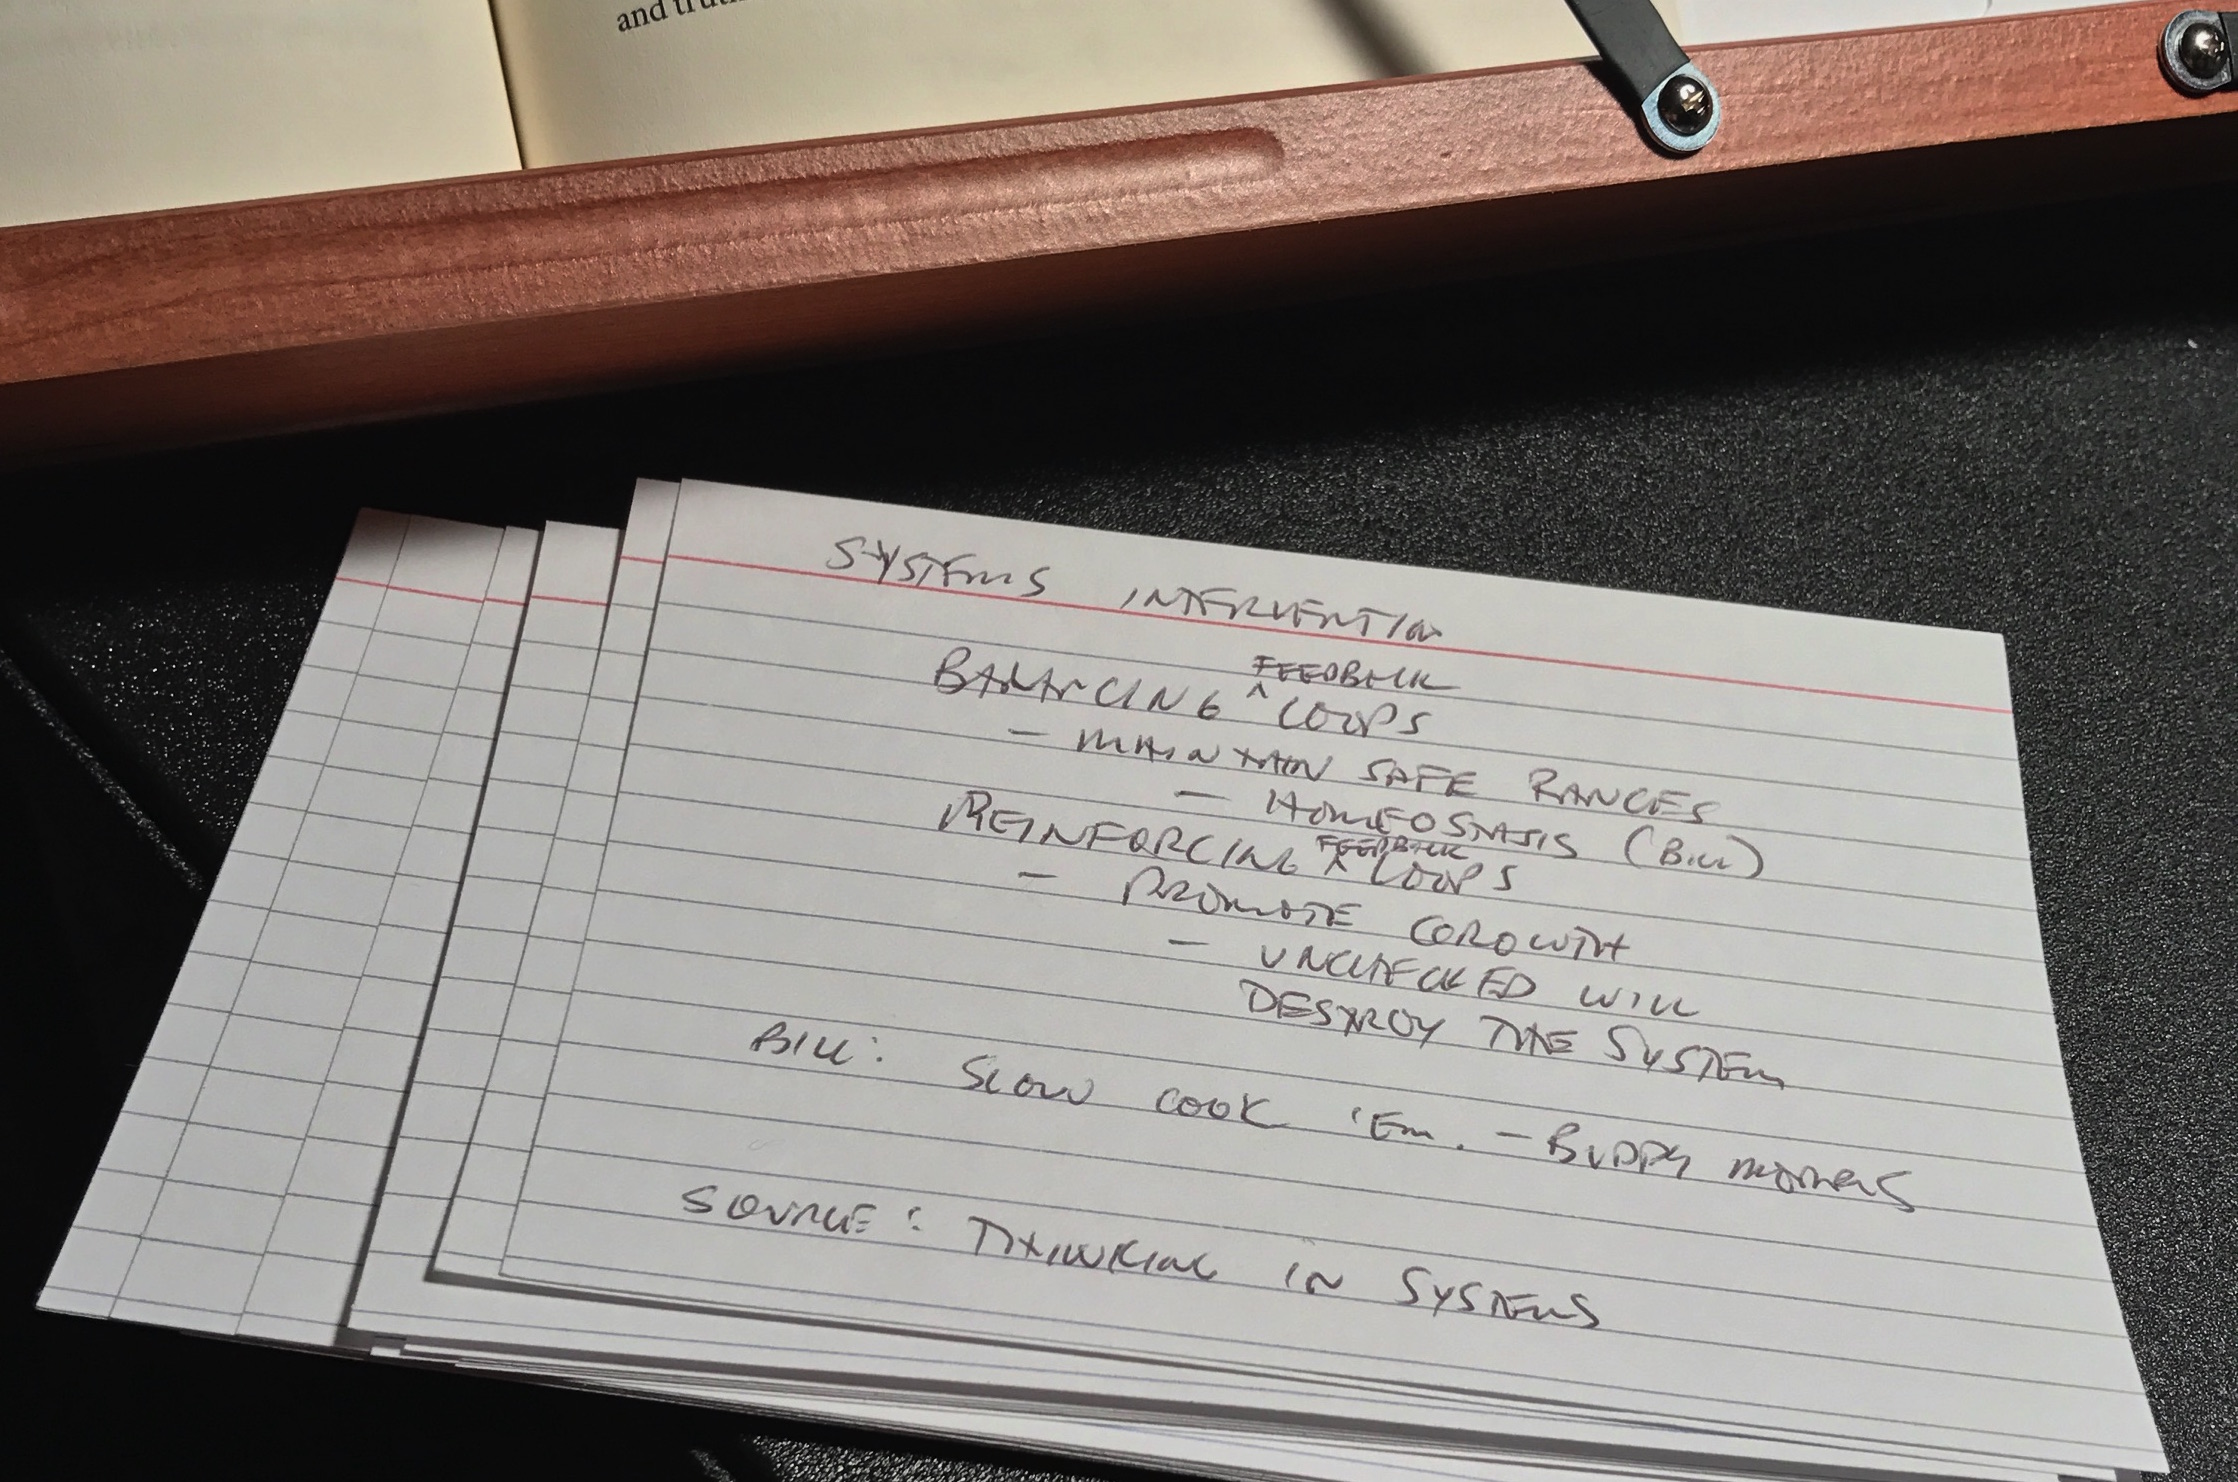 and
SYSTEMS INTERVENTION
FEEDBACK
BALANCING ^ LOOPS
- MAINTAIN SAFE RANGES
- HOMEOSTASIS (BILL)
FEEDBACK
REINFORCING ^ LOOPS
- PROMOTE GROWTH
- UNCHECKED WILL
DESTROY THE SYSTEM
BILL: SLOW COOK 'EM. - BUDDY
SOURCE: THINKING IN SYSTEMS